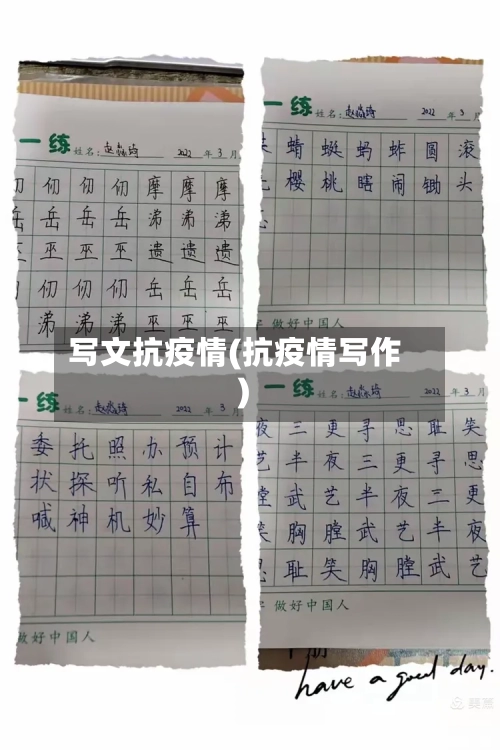 一练 姓名: 2022 年 3 月
仞 仞 仞 摩 摩 摩
岳 岳 岳 涕 涕 涕
巫 巫 巫 遗 遗 遗
仞 仞 仞 岳 岳 岳
涕 涕 涕 巫 巫 巫
一练 姓名: 2022 年 3 月
蜻 蜓 蚂 蚱 圆 滚
樱 桃 瞎 闹 锄 头
做好中国人
写文抗疫情(抗疫情写作
)
一练 姓名: 2022 年 3 月
委 托 照 办 预 计
状 探 听 私 自 布
喊 神 机 妙 算
做好中国人
一练 姓名: 2022 年 3
夜 三 更 寻 思 耻 笑
艺 半 夜 三 更 寻 思
膛 武 艺 半 夜 三 更
笑 胸 膛 武 艺 半 夜
思 耻 笑 胸 膛 武 艺
做好中国人
have a good day.
美篇